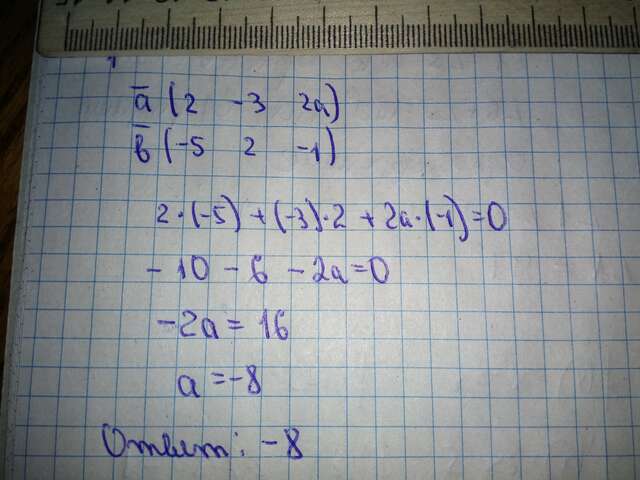 a̅ (2 -3 2a)
b̅ (-5 2 -1)
2·(-5)+(-3)·2+2a·(-1)=0
-10-6-2a=0
-2a=16
a=-8
Ответ: -8